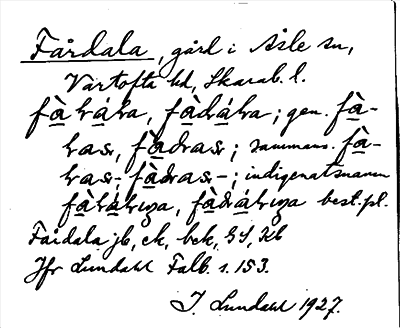 Fårdala, gård i Åsle sn,
Vartofta hd, Skarab. l.
fàƚáƚa, fàdáƚa; gen. fà-
ƚas, fàdƚas; sammans. fà-
ƚas-, fàdƚas-; indigenatsnamn
fàƚáƚiga, fàdáƚiga best. pl.
Fårdala jb, ek, bek, GS, Kb
Jfr Lundahl Falb. s. 153.
I. Lundahl 1927.